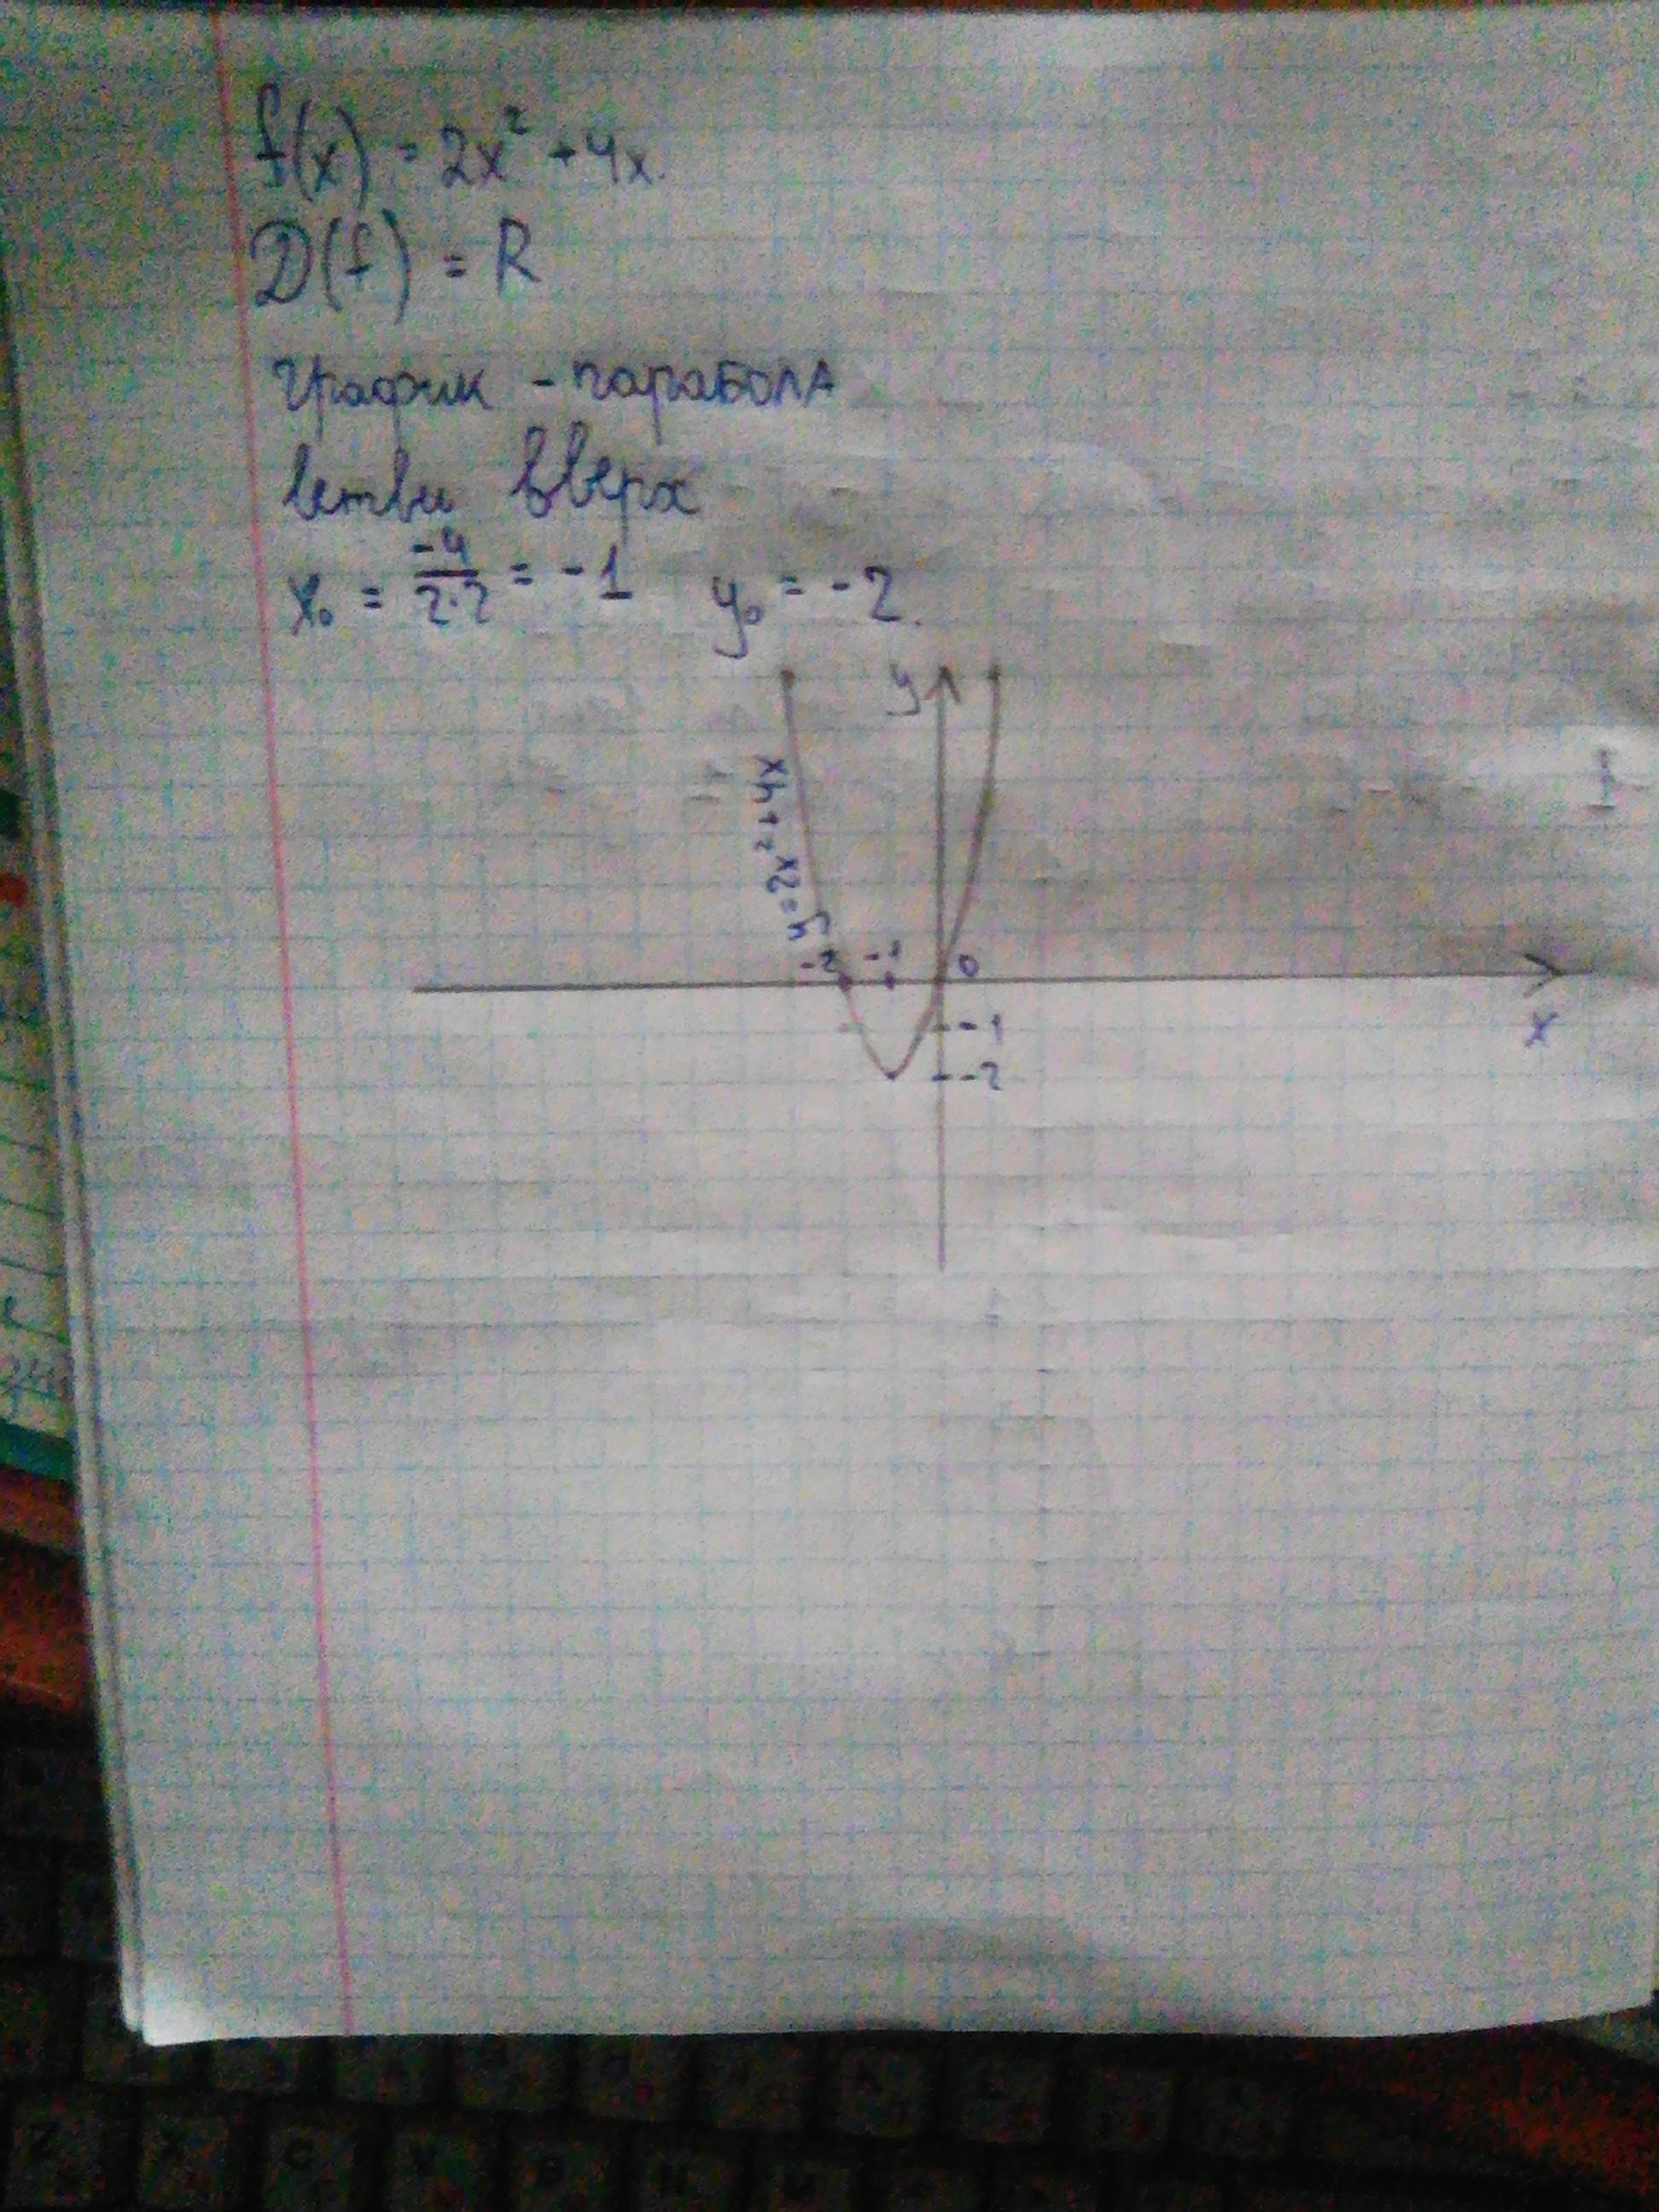 f(x) = 2x² + 4x.
D(f) = R
график - парабола
ветви вверх
x₀ = -4/2·2 = -1 y₀ = -2.
y
y = 2x² + 4x
-2 -1 0
x
-1
-2